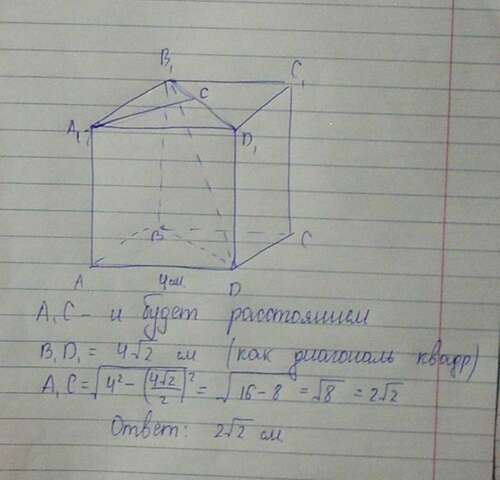 B₁
C₁
C
A₁
D₁
B
C
A
4см
D
A₁C – и будет расстоянием
B₁D₁ = 4√2 см (как диагональ квадр)
A₁C = √(4² − (4√2/2)²) = √(16 − 8) = √8 = 2√2
Ответ: 2√2 см